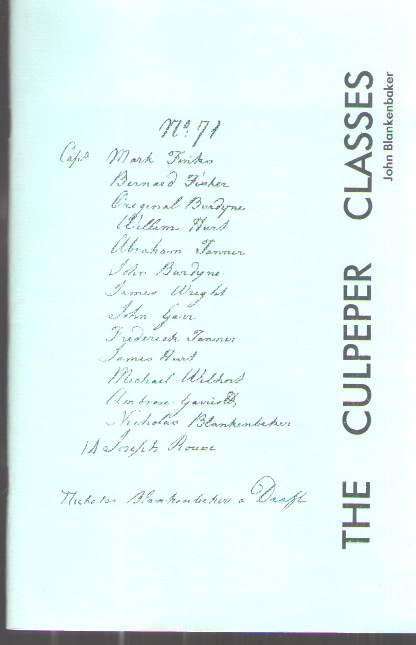 No 71
Capt. Mark Finks
Bernard Fisher
Original Burdyne
William Hurt
Abraham Tanner
John Burdyne
James Wright
John Garr
Frederick Tanner
James Hurt
Michael Wilhort
Ambrose
Nicholas Blankenbeker
14 Joseph Rouse
Nicholas Blankenbeker a Draft
THE CULPEPER CLASSES
John Blankenbaker